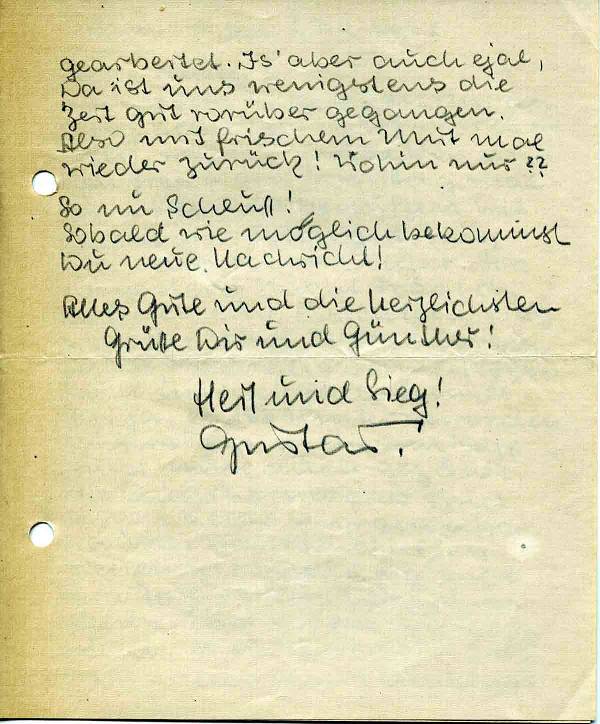 gearbeitet. Is' aber auch ejal,
Da ist uns wenigstens die
Zeit gut vorüber gegangen.
Also mit frischem Mut mal
wieder zurück! Wohin nur??
So nu Schluß!
Sobald wie möglich bekommst
Du neue Nachricht!
Alles Gute und die herzlichsten
Grüße Dir und Günther!
Heil und Sieg!
Gustav!